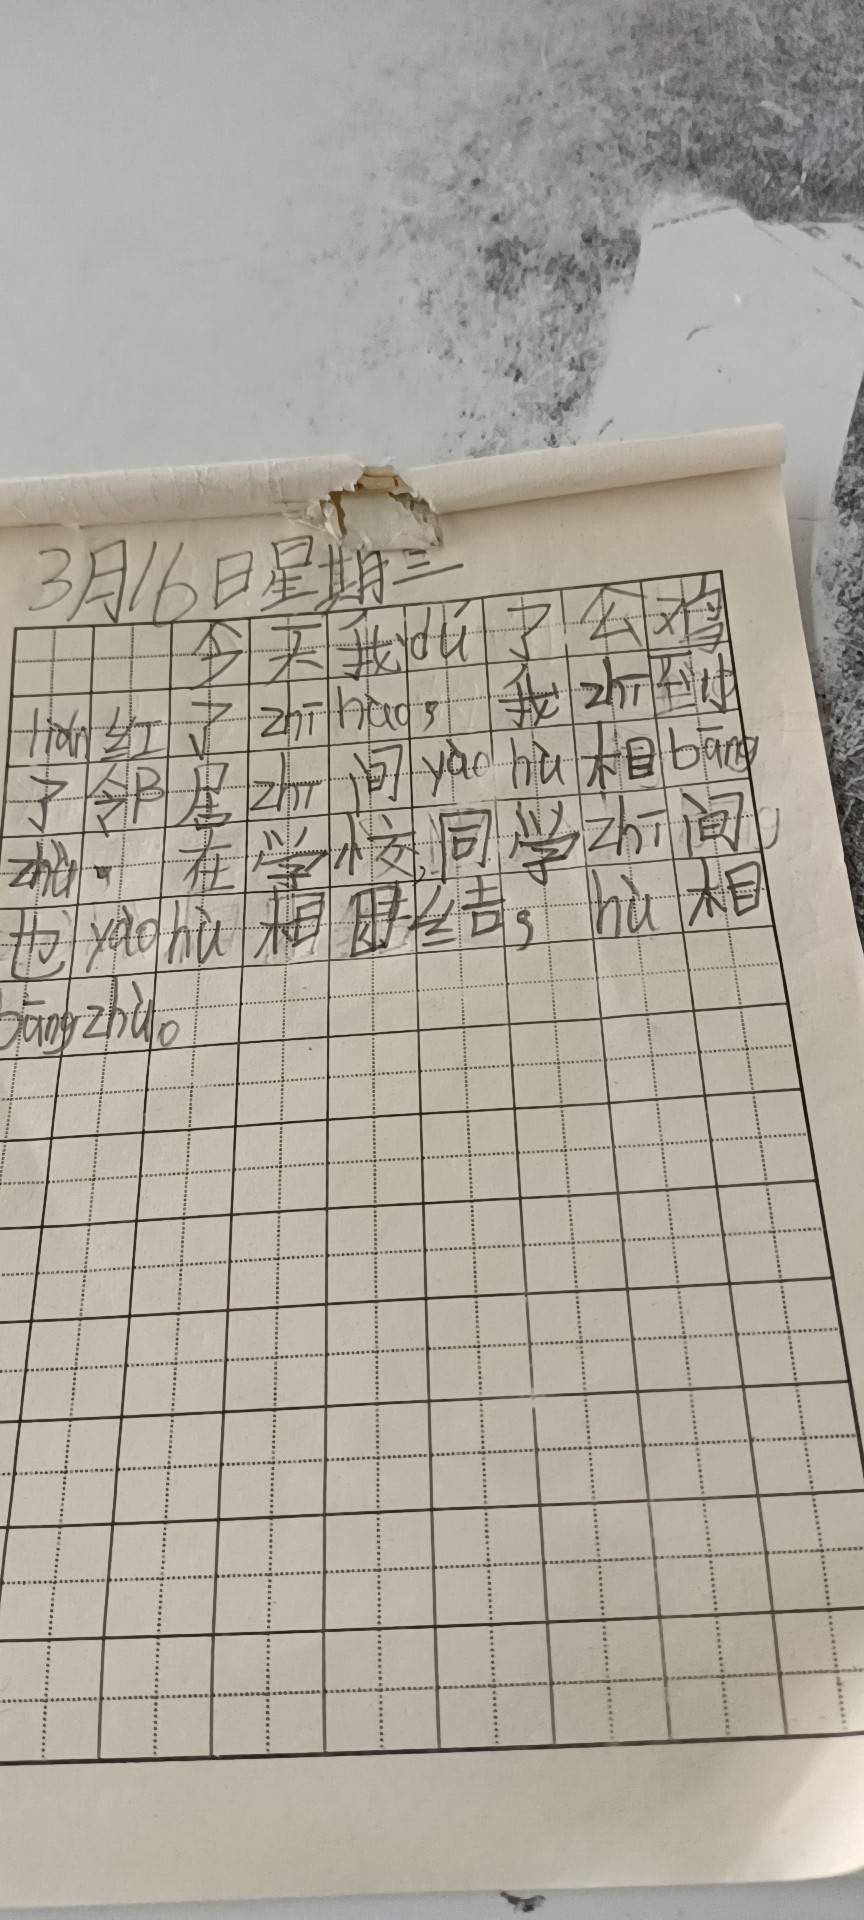 3月16日星期三
今天我dú了公鸡
liǎn红了zhī hào，我zhī到
了邻居zhī间yào hù相bāng
zhù。在学校，同学zhī间
也yào hù相团结，hù相
bāng zhù。